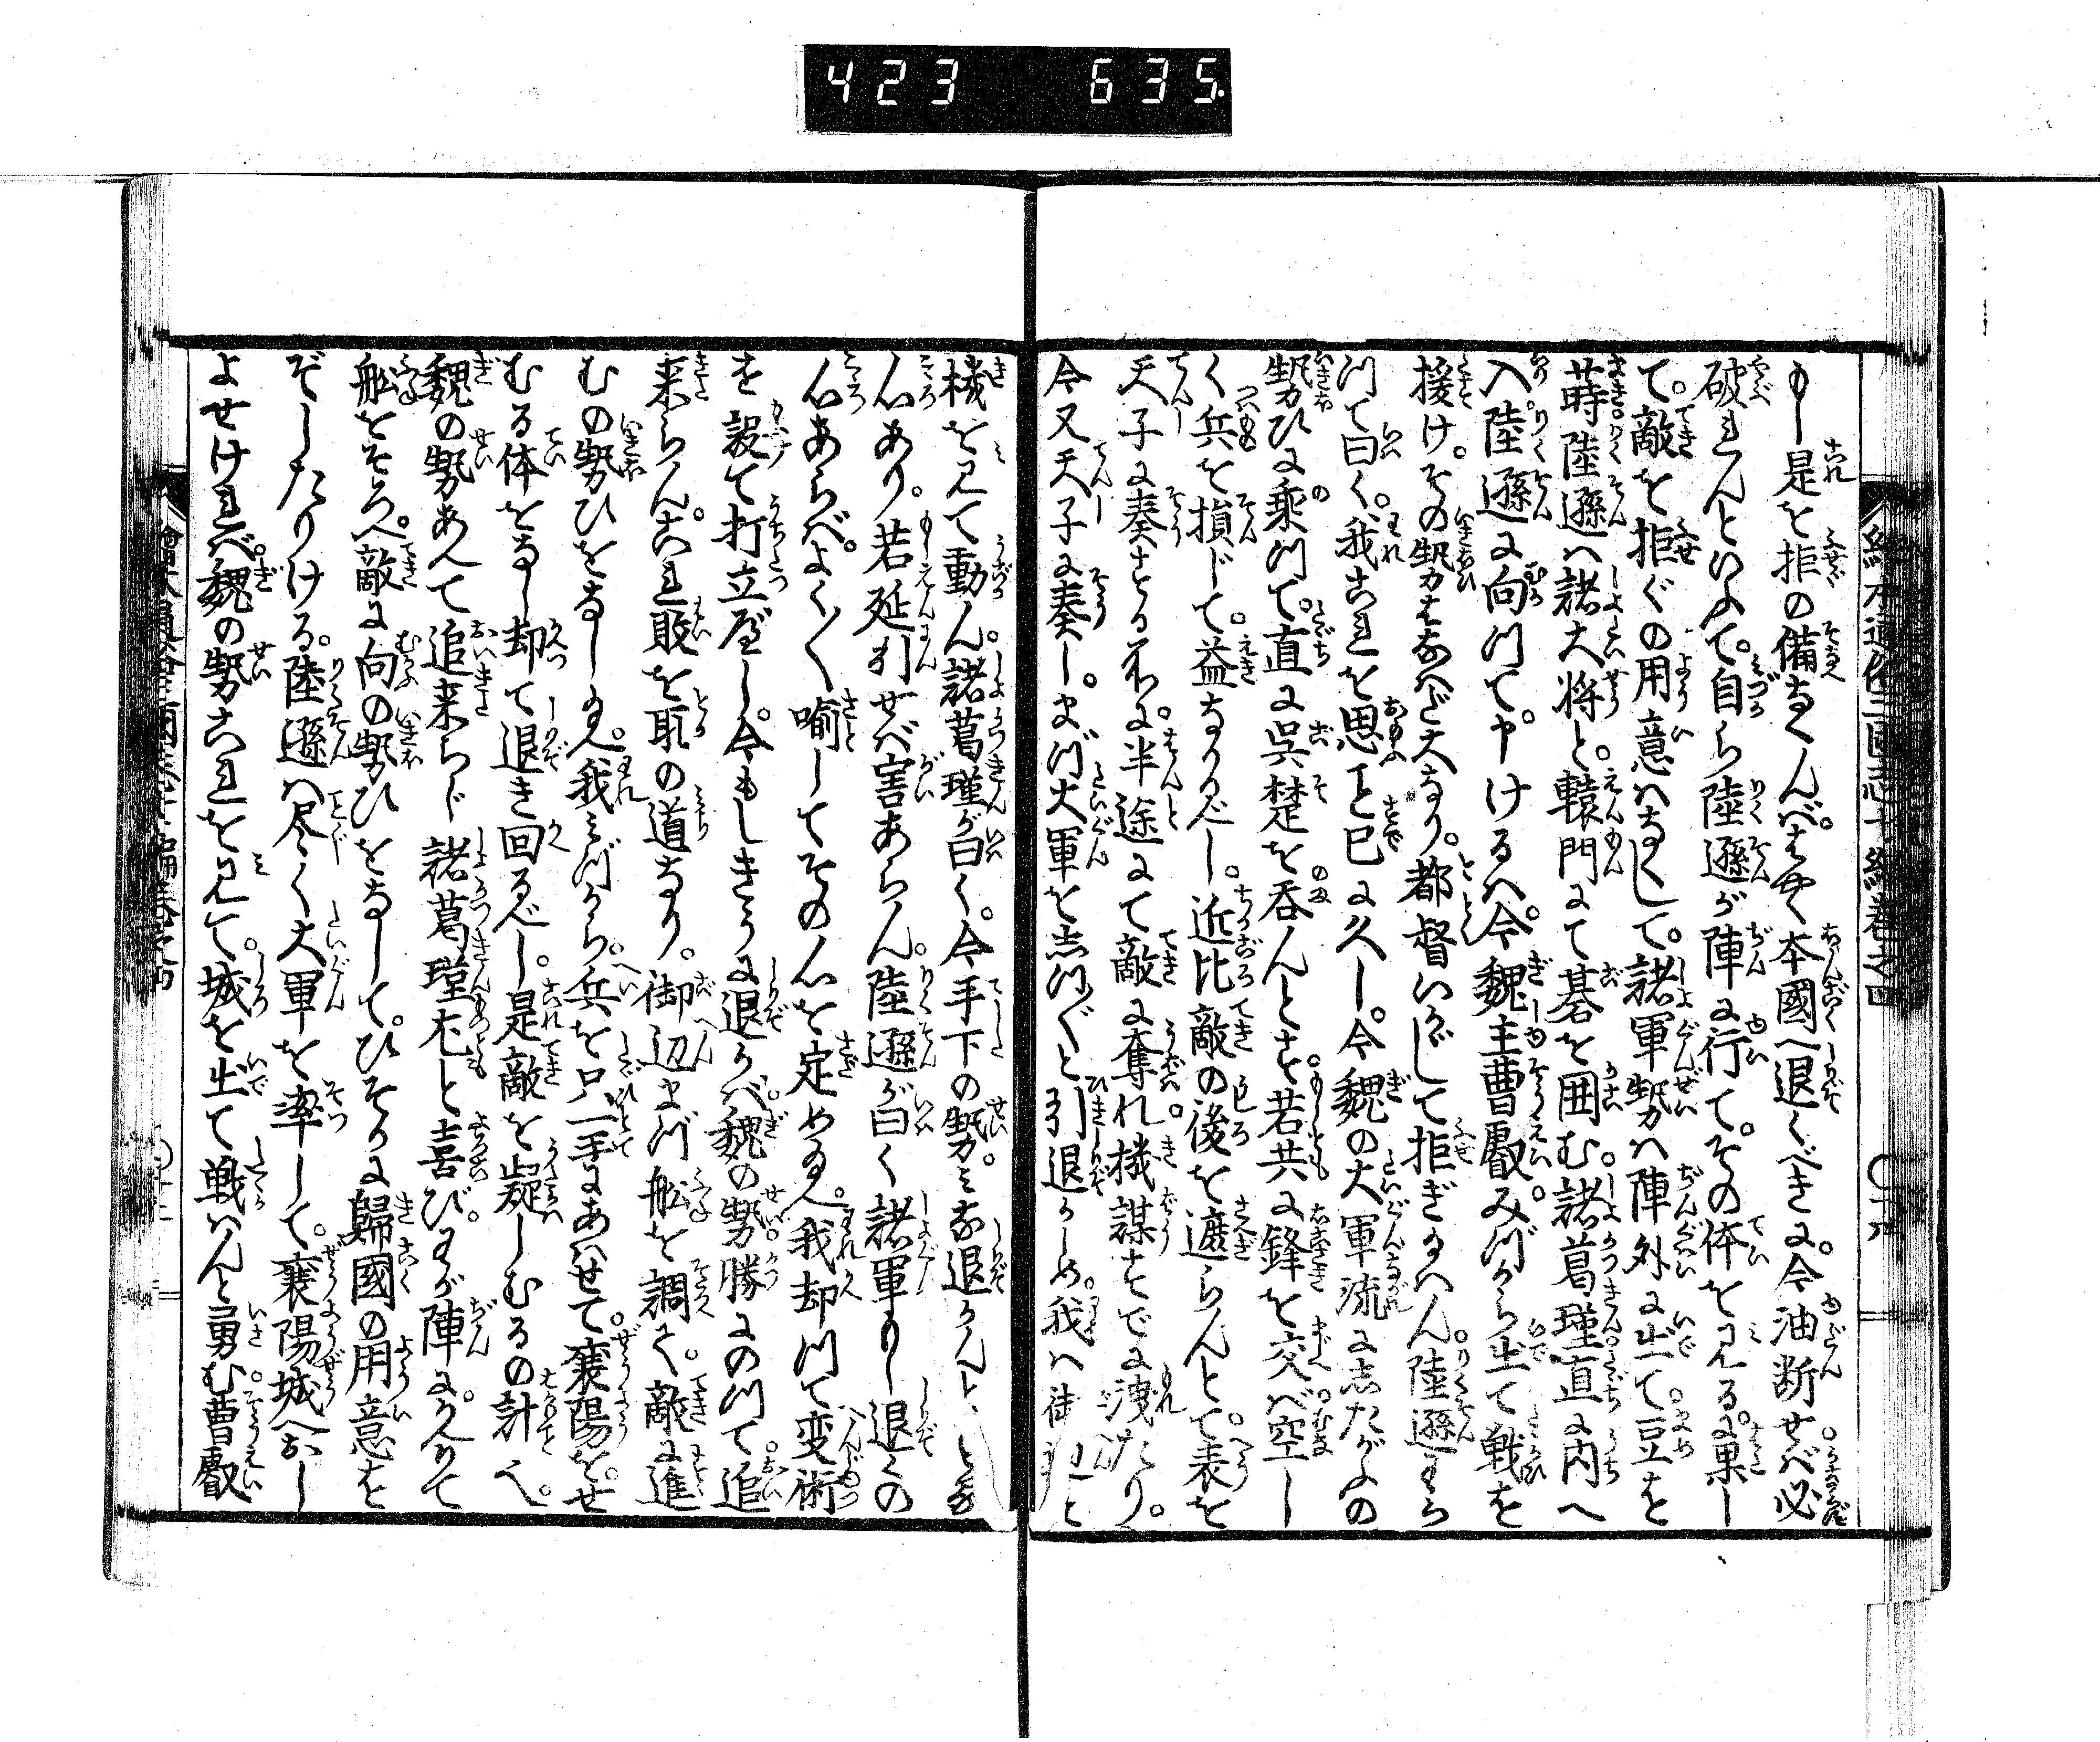 423 635.
もし是を拒の備なくんばはやく本國へ退くべきに。今油断せば必
破れんといふて。自ら陸遜が陣に行て。その体を見るに。果し
て。敵を拒ぐの用意はなくして。諸軍勢は陣外に出て豆を
蒔。陸遜は諸大将と。轅門にて碁を囲む。諸葛瑾。直に内へ
入。陸遜に向つて申けるは。今魏主曹叡。みづから出て戦を
援け。その勢はなはだ大なり。都督いかがして拒ぎ給はん。陸遜わら
つて曰く。我これを思こと已に久し。今魏の大軍流にしたがふの
勢ひに乗つて。直に呉楚を呑んとす。若共に鋒を交ば空し
く兵を損じて。益なかるべし。近比敵の後を遮らんとて。表を
天子に奏する所に。半途にて敵に奪れ機謀すでに洩たり。
今又天子に奏し。まづ大軍をしづしづと引退かしめ。我は
機を見て動ん。諸葛瑾が曰く。今手下の勢。みな退かんと
心あり。若延引せば害あらん。陸遜が曰く諸軍もし退くの
心あらば。よくよく喩してその心を定め給へ。我却つて変術
を設て打立べし。今もしきうに退かば。魏の勢勝にのつて追
来らん。これ敗を取の道なり。御辺まづ舩を調へ。敵に進
むの勢ひをなし給へ。我みづから。兵を只一手にあはせて。襄陽をせ
むる体をなし却て退き回るべし。是敵を疑しむるの計へ。
魏の勢あへて追来らじ諸葛瑾尤と喜び。わが陣にかへりて
舩をそろへ。敵に向の勢ひをなして。ひそかに歸國の用意を
ぞしたりける。陸遜は尽く大軍を率して。襄陽城へおし
よせければ。魏の勢これを見て。城を出て戦はんと勇む。曹叡